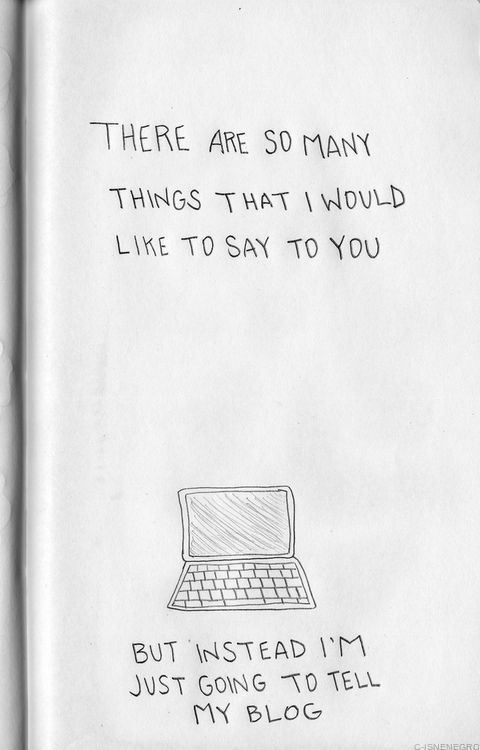 THERE ARE SO MANY
THINGS THAT I WOULD
LIKE TO SAY TO YOU
BUT INSTEAD I'M
JUST GOING TO TELL
MY BLOG
C-ISNENEGRO